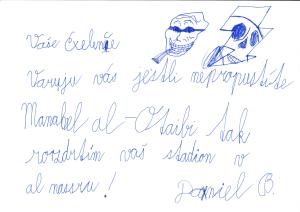 Vaše Excelenţe
Varuju vás jestli nepropustíte
Manahel al-Otaibi tak
rozdrtím vaš stadion v
al nassru!
Daniel B.